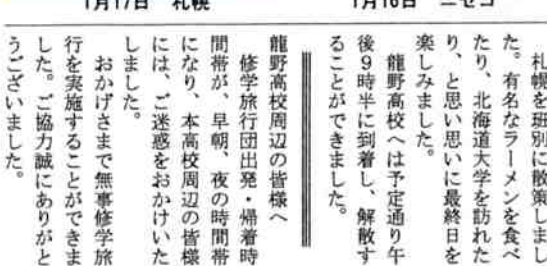 1月17日 札幌
1月16日 ニセコ
札幌を班別に散策しまし
た。有名なラーメンを食べ
たり、北海道大学を訪れた
り、と思い思いに最終日を
楽しみました。
龍野高校へは予定通り午
後9時半に到着し、解散す
ることができました。
龍野高校周辺の皆様へ
修学旅行団出発・帰着時
間帯が、早朝、夜の時間帯
になり、本高校周辺の皆様
には、ご迷惑をおかけいた
しました。
おかげさまで無事修学旅
行を実施することができま
した。ご協力誠にありがと
うございました。